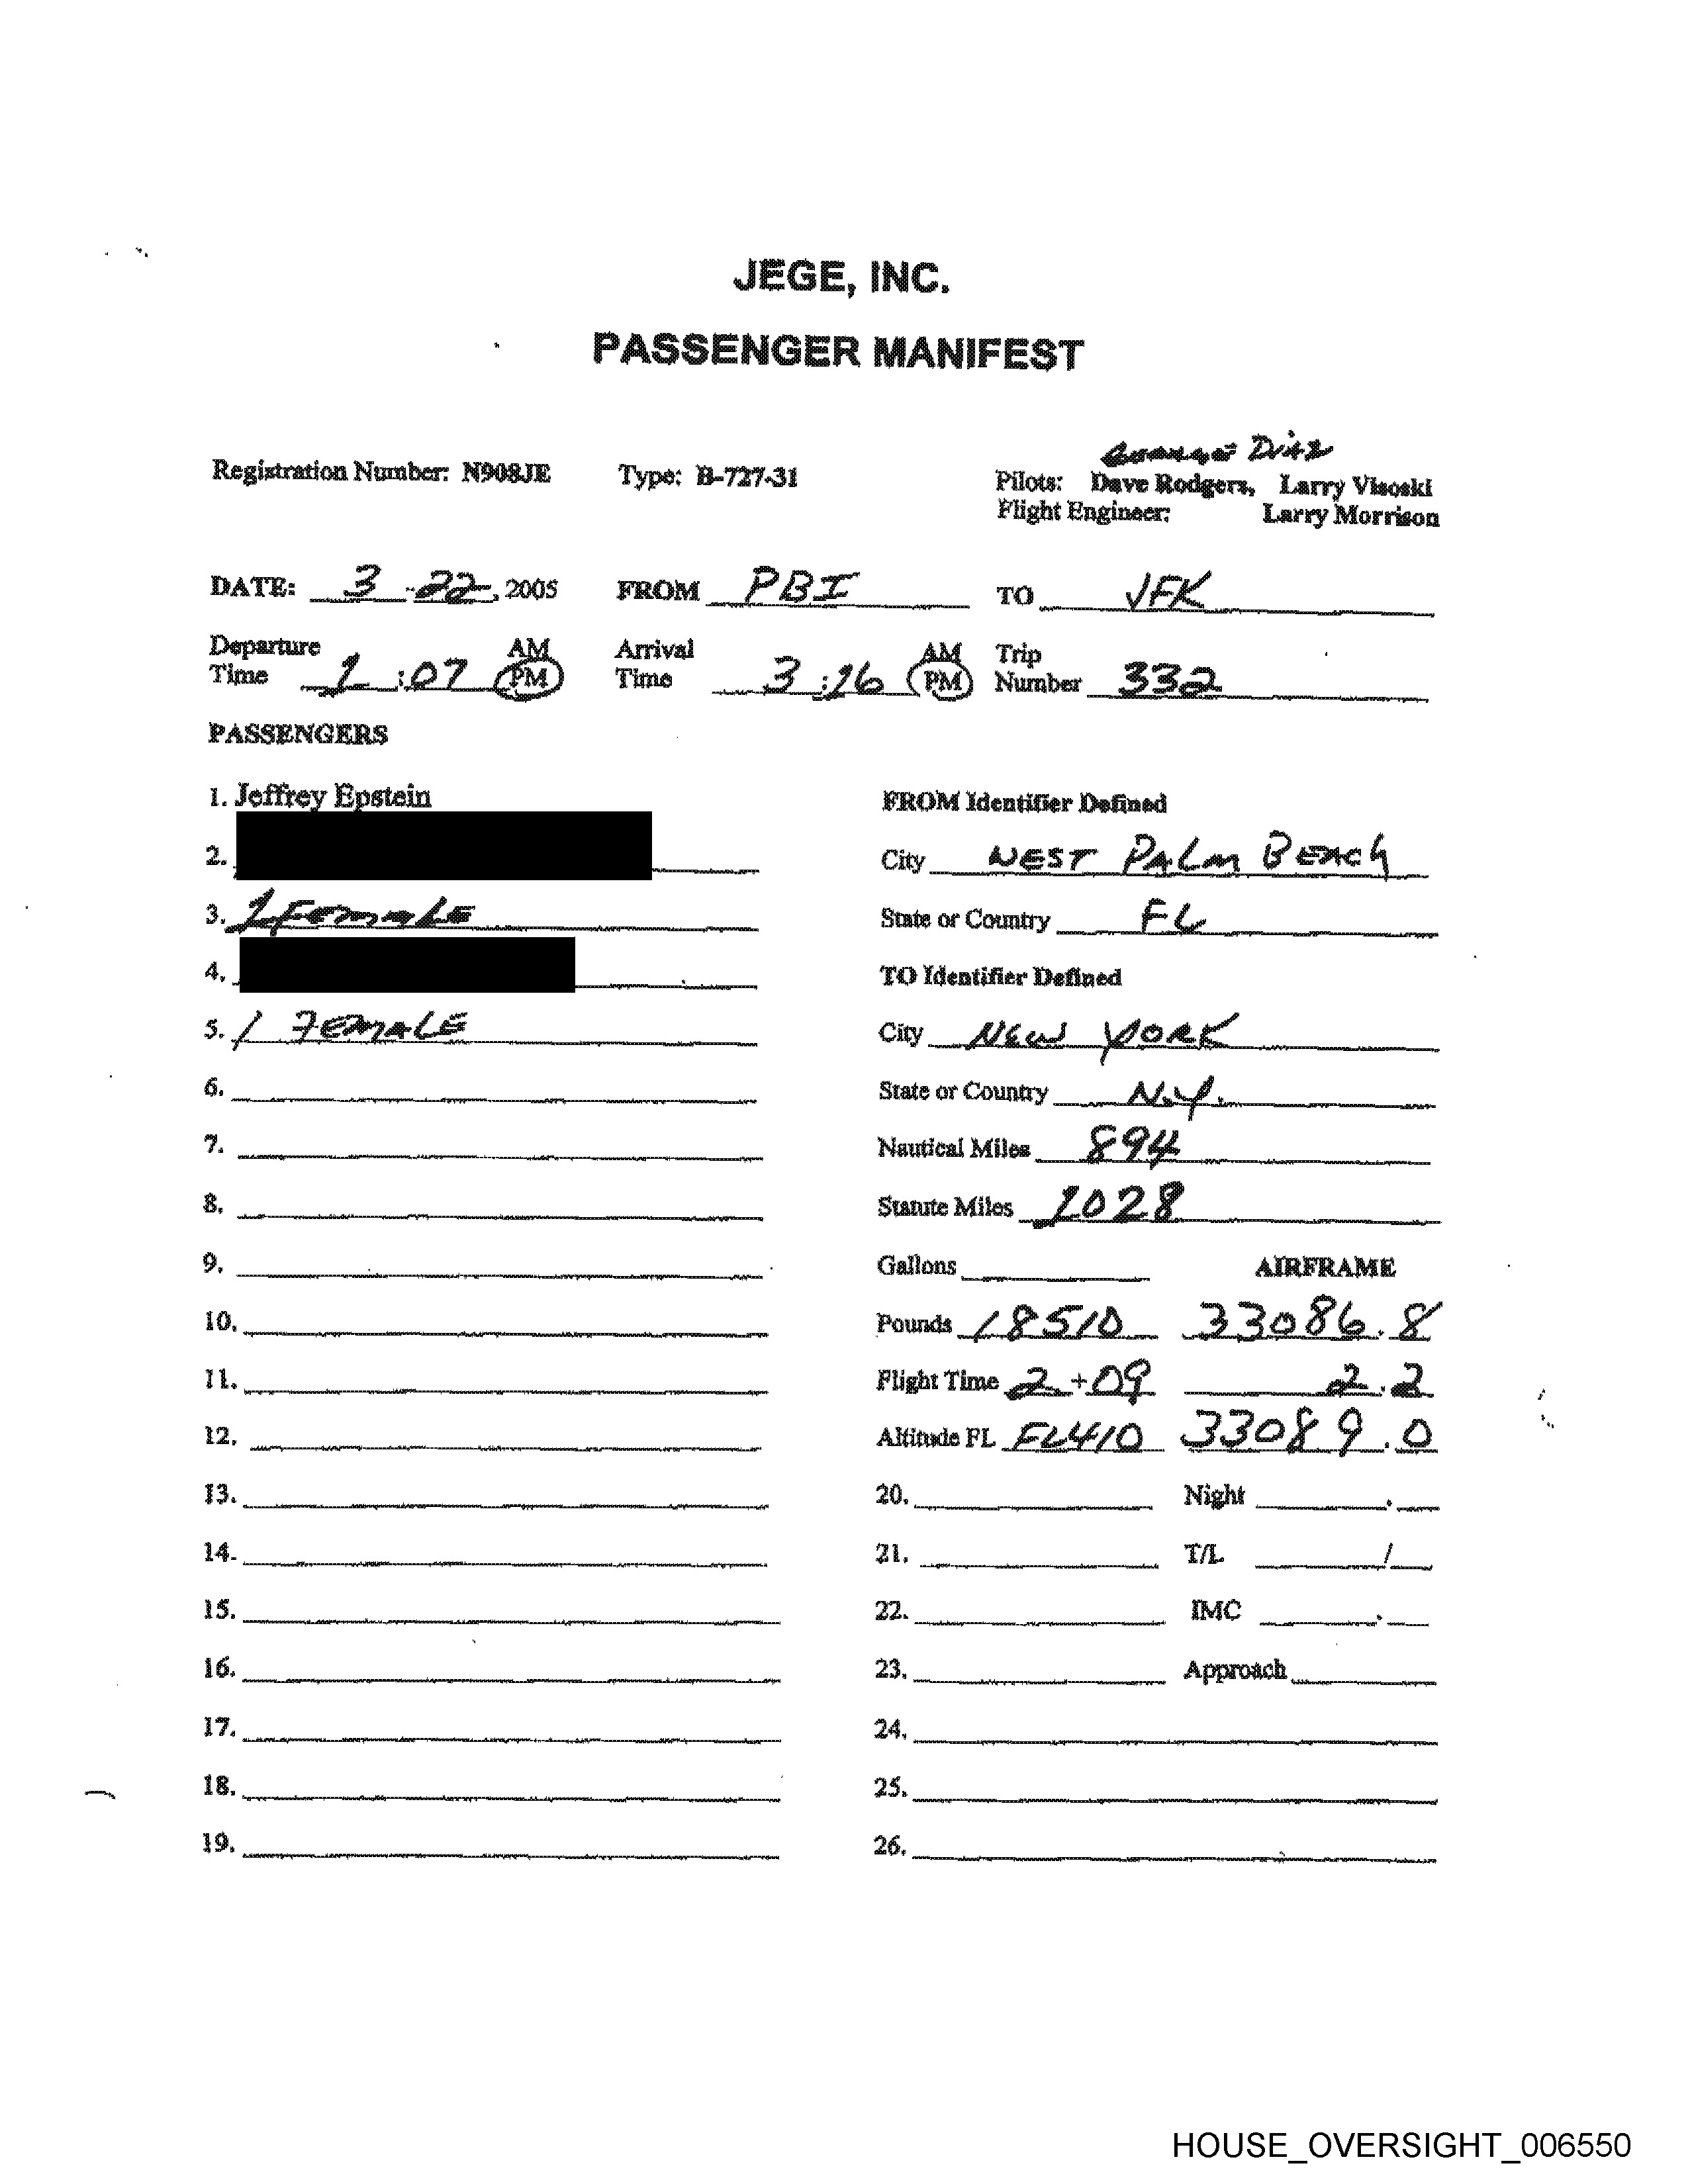 JEGE, INC.
PASSENGER MANIFEST
Diaz
Registration Number: N908JE Type: B-727-31 Pilots: Dave Rodgers, Larry Visoski
Flight Engineer: Larry Morrison
DATE: 3 - 22, 2005 FROM PBI TO JFK
Departure Time 1:07 AM PM Arrival Time 3:16 AM PM Trip Number 332
PASSENGERS
1. Jeffrey Epstein
2.
3. 1 FEMALE
4.
5. 1 FEMALE
6.
7.
8.
9.
10.
11.
12.
13.
14.
15.
16.
17.
18.
19.
FROM Identifier Defined
City WEST PALM BEACH
State or Country FL
TO Identifier Defined
City NEW YORK
State or Country N.Y.
Nautical Miles 894
Statute Miles 1028
Gallons AIRFRAME
Pounds 18510 33086.8
Flight Time 2+09 2.2
Altitude FL FL410 33089.0
20. Night .
21. T/L /
22. IMC .
23. Approach
24.
25.
26.
HOUSE_OVERSIGHT_006550